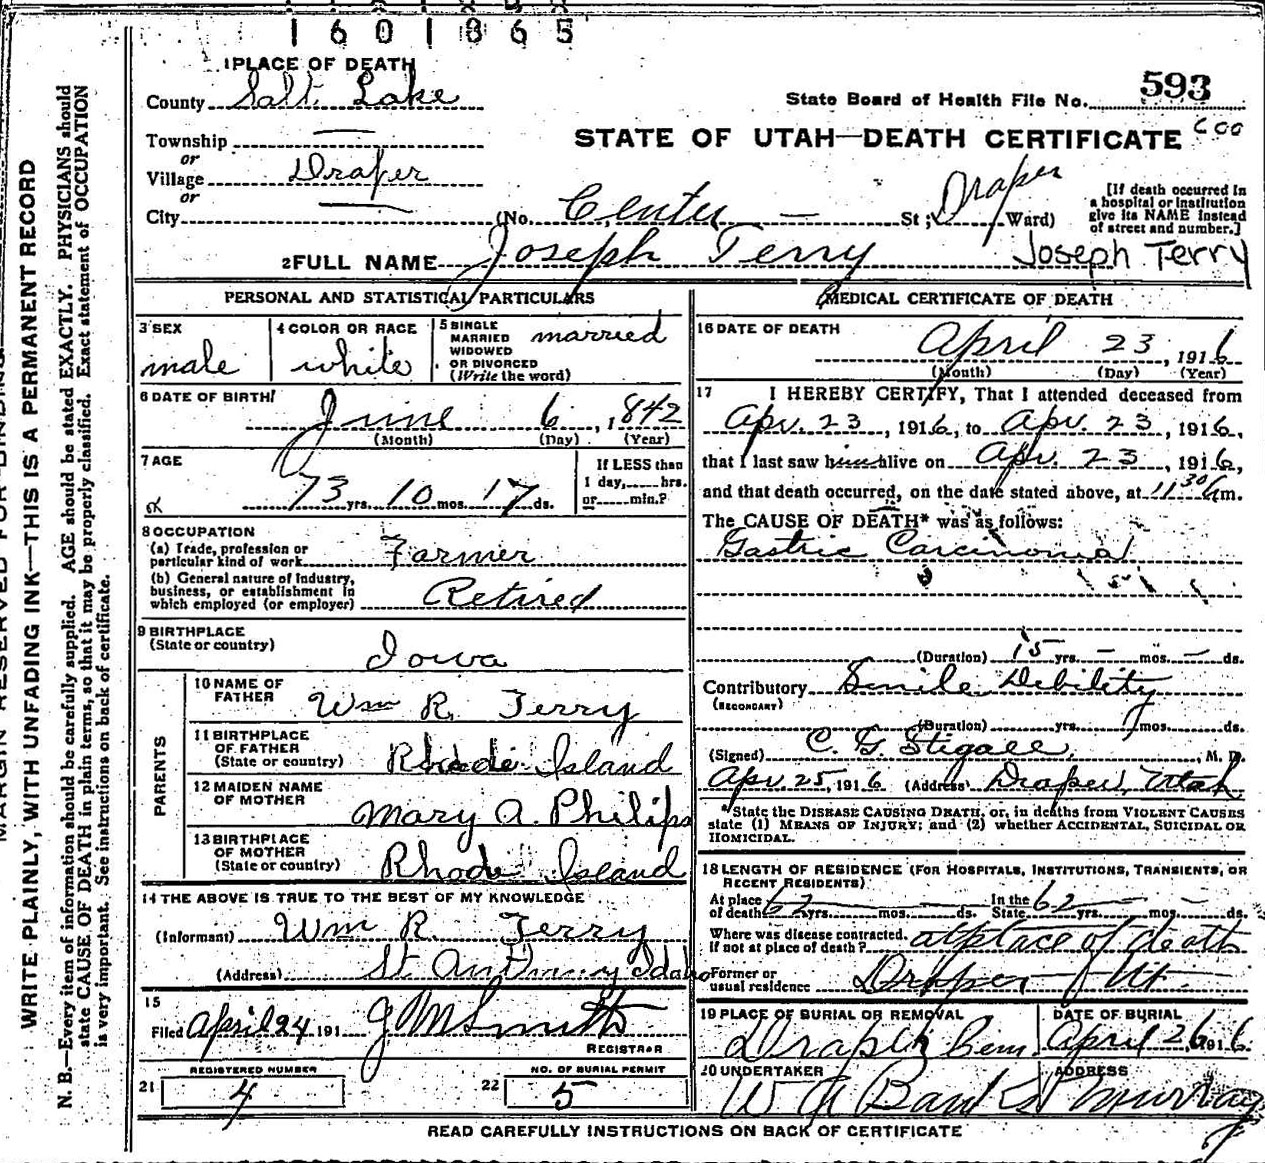 1601865
1 PLACE OF DEATH
County Salt Lake
State Board of Health File No. 593
Township —
STATE OF UTAH—DEATH CERTIFICATE 600
or
Village Draper
or
City — (No. Center — St; Draper Ward)
[If death occurred in
a hospital or institution
give its NAME instead
of street and number.]
2 FULL NAME Joseph Terry Joseph Terry
PERSONAL AND STATISTICAL PARTICULARS
3 SEX male
4 COLOR OR RACE white
5 SINGLE
MARRIED
WIDOWED
OR DIVORCED
(Write the word) married
6 DATE OF BIRTH
June 6, 1842
(Month) (Day) (Year)
7 AGE
73 yrs. 10 mos. 17 ds.
If LESS than
1 day, hrs.
or min.?
8 OCCUPATION
(a) Trade, profession or
particular kind of work Farmer
(b) General nature of industry,
business, or establishment in
which employed (or employer) Retired
9 BIRTHPLACE
(State or country) Iowa
PARENTS
10 NAME OF
FATHER Wm R. Terry
11 BIRTHPLACE
OF FATHER
(State or country) Rhode Island
12 MAIDEN NAME
OF MOTHER Mary A. Philips
13 BIRTHPLACE
OF MOTHER
(State or country) Rhode Island
14 THE ABOVE IS TRUE TO THE BEST OF MY KNOWLEDGE
(Informant) Wm R. Terry
(Address) St. Anthony Idaho
15
Filed April 24 191 J M Smith
REGISTRAR
REGISTERED NUMBER
21 4
NO. OF BURIAL PERMIT
22 5
MEDICAL CERTIFICATE OF DEATH
16 DATE OF DEATH
April 23, 1916
(Month) (Day) (Year)
17 I HEREBY CERTIFY, That I attended deceased from
Apr. 23, 1916, to Apr. 23, 1916,
that I last saw him alive on Apr. 23, 1916,
and that death occurred, on the date stated above, at 11 30 am.
The CAUSE OF DEATH* was as follows:
Gastric Carcinoma
(Duration) 15 yrs. — mos. — ds.
Contributory Senile Debility
(SECONDARY)
(Duration) yrs. mos. ds.
(Signed) C. G. Stigall, M. D.
Apr. 25, 1916 (Address) Draper, Utah
*State the DISEASE CAUSING DEATH, or, in deaths from VIOLENT CAUSES
state (1) MEANS OF INJURY; and (2) whether ACCIDENTAL, SUICIDAL OR
HOMICIDAL.
18 LENGTH OF RESIDENCE (FOR HOSPITALS, INSTITUTIONS, TRANSIENTS, OR
RECENT RESIDENTS)
At place
of death 62 yrs. mos. ds. In the
State 62 yrs. — mos. — ds.
Where was disease contracted,
if not at place of death? at place of death
Former or
usual residence Draper Ut
19 PLACE OF BURIAL OR REMOVAL
Draper Cem
DATE OF BURIAL
April 26, 1916.
20 UNDERTAKER
ADDRESS
Murray
READ CAREFULLY INSTRUCTIONS ON BACK OF CERTIFICATE
MARGIN RESERVED FOR BINDING
WRITE PLAINLY, WITH UNFADING INK—THIS IS A PERMANENT RECORD
N. B.—Every item of information should be carefully supplied. AGE should be stated EXACTLY. PHYSICIANS should
state CAUSE OF DEATH in plain terms, so that it may be properly classified. Exact statement of OCCUPATION
is very important. See instructions on back of certificate.